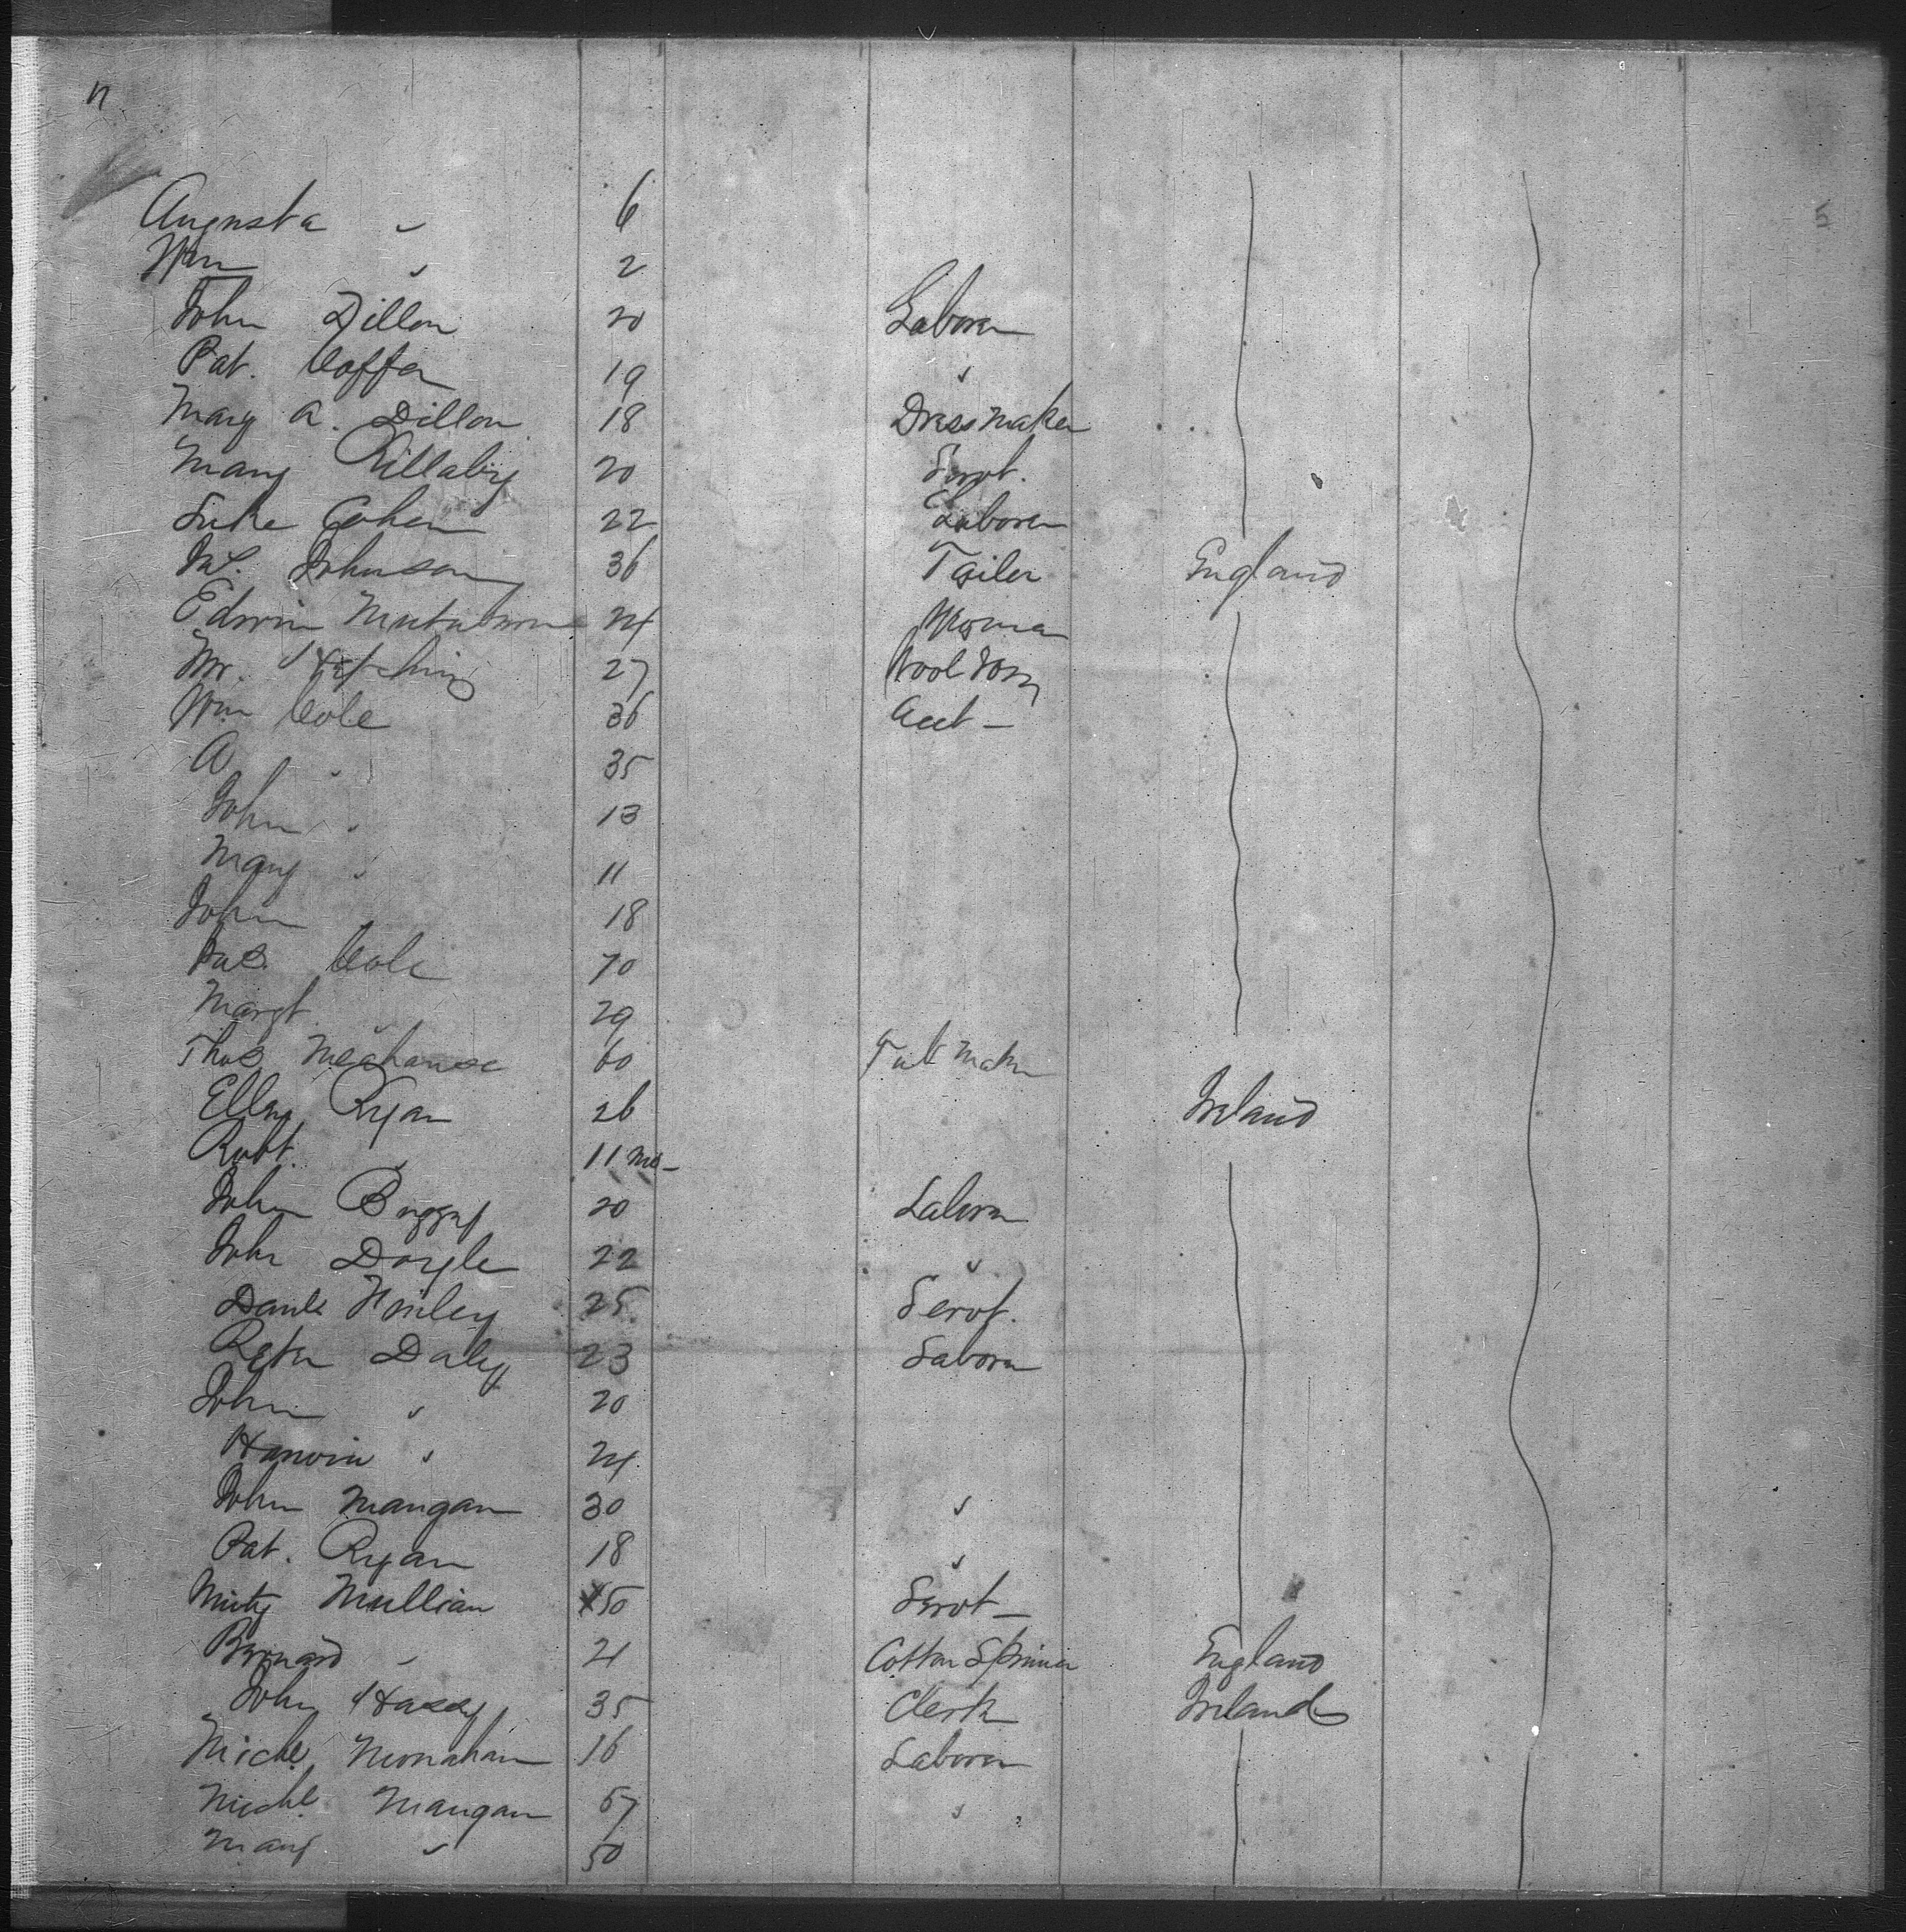 Augusta " 6
Wm " 2
John Dillon 20 Laborer
Pat. Coffer 19 "
Mary A. Dillon 18 Dress Maker
Mary 20 Servt.
Luke Cohen 22 Laborer
Johnson 36 Tailer England
Edwin 24
27
Wm Cole 36 Acct -
A " 35
John " 13
Mary " 11
John " 18
Jas. Cole 70
Margt. " 29
Thos 60 Maker
Ellen Ryan 26 Ireland
Robt. " 11 mo-
John Buggy 20 Labrer
John Doyle 22 "
Danl. Finley 25 Servt.
Peter Daly 23 Laborer
John " 20
" 24
John Mangan 30 "
Pat. Ryan 18 "
Mullian 50 Servt -
Bernard " 21 Cotton Spinner England
John Hassey 35 Clerk Ireland
Michl. Monahan 16 Laborer
Michl. Mangan 57 "
Mary " 50